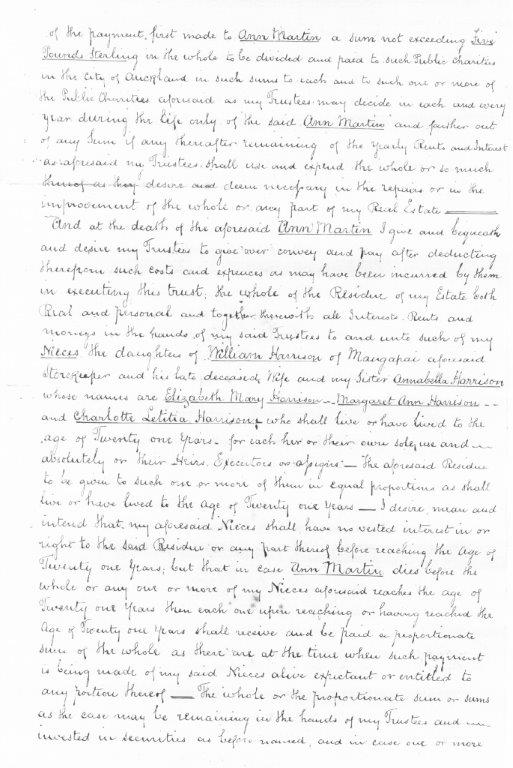 of the payment, first made to Ann Martin a sum not exceeding Five
Pounds Sterling in the whole to be divided and paid to such Public charities
in the City of Auckland in such sums to each and to such one or more of
the Public Charities aforesaid as my Trustees may decide in each and every
year during the life only of the said Ann Martin and further out
of any Sum if any thereafter remaining of the Yearly Rents and Interest
as aforesaid my Trustees shall use and expend the whole or so much
thereof as they desire and deem necessary in the repairs or in the
improvement of the whole or any part of my Real Estate ———
And at the death of the aforesaid Ann Martin I give and bequeath
and desire my Trustees to give over convey and pay after deducting
therefrom such costs and expences as may have been incurred by them
in executing this trust, the whole of the Residue of my Estate both
Real and personal and together therewith all Interests Rents and
moneys in the hands of my said Trustees to and unto such of my
Nieces the daughters of William Harrison of Mangapai aforesaid
Storekeeper and his late deceased Wife and my Sister Annabella Harrison
whose names are Elizabeth Mary Harrison — Margaret Ann Harrison - -
and Charlotte Letitia Harrison, who shall live or have lived to the
age of Twenty one Years - for each her or their own sole use and —
absolutely or their Heirs. Executors or assigns — The aforesaid Residue
to be given to such one or more of them in equal proportions as shall
live or have lived to the Age of Twenty one Years — I desire, mean and
intend that my aforesaid Nieces shall have no vested interest in or
right to the said Residue or any part thereof before reaching the Age of
Twenty one Years; but that in case Ann Martin dies before the
whole or any one or more of my Nieces aforesaid reaches the age of
Twenty one Years then each one upon reaching or having reached the
Age of Twenty one Years shall receive and be paid a proportionate
sum of the whole as there are at the time when such payment
is being made of my said Nieces alive expectant or entitled to
any portion thereof — The whole or the proportionate sum or sums
as the case may be remaining in the hands of my Trustees and —
invested in securities as before named, and in case one or more